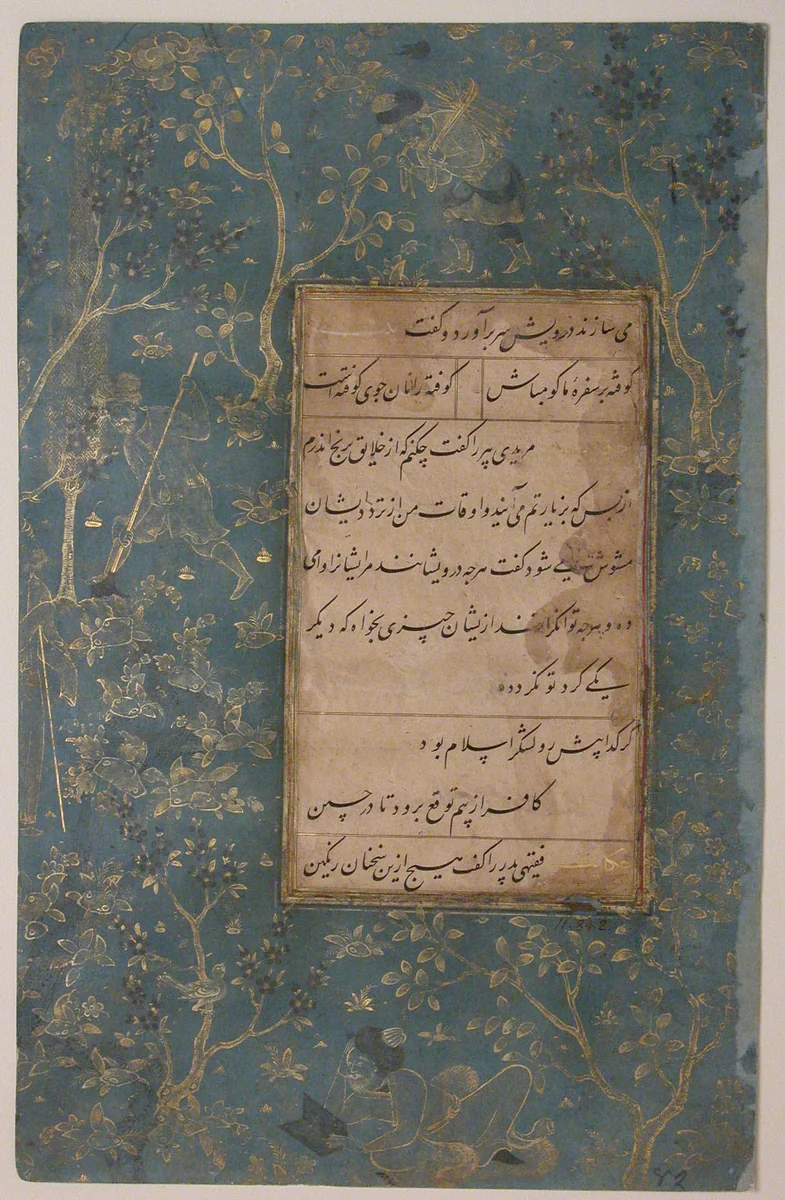 می سازند درویش سر برآورد و گفت
کوفته بر سفرهٔ ما کو مباش کوفته را نان جوی کوفته است
مریدی پیر را گفت چکنم که از خلایق برنج اندرم
از بس که بزیارتم می آیند و اوقات من از تردد ایشان
مشوش می شود گفت هرچه درویشانند مر ایشانرا وامی
ده و هرچه توانگرانند از یشان چیزی بخواه که دیگر
یکی گرد تو نگردد
گر گدا پیش رو لشگر اسلام بود
کافر از بیم توقع برود تا در چین
فقیهی پدر را گفت هیچ ازین سخنان رنگین
11.84.2
82